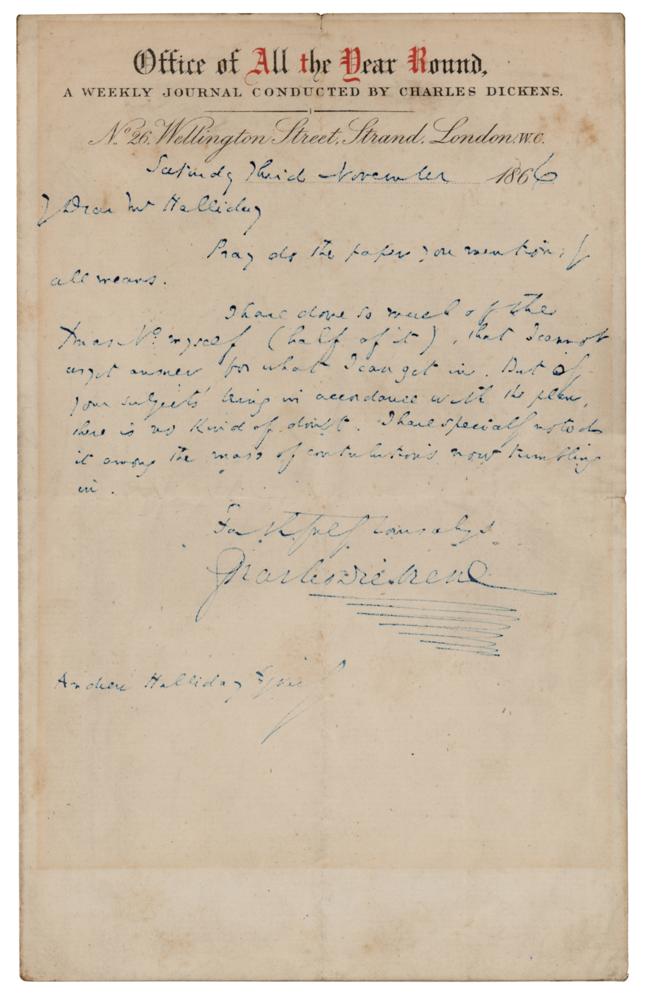 Office of All the Year Round,
A WEEKLY JOURNAL CONDUCTED BY CHARLES DICKENS.
No. 26, Wellington Street, Strand, London. W.C.
Saturday Third November 1866
My Dear Mr Halliday
Pray do the paper you mention, by
all means.
I have done so much of the
Xmas No. myself (half of it), that I cannot
as yet answer for what I can get in. But of
your subject's being in accordance with the plan,
there is no kind of doubt. I have specially noted
it among the mass of contributions now tumbling
in.
Faithfully Yours always
Charles Dickens
Andrew Halliday Esquire